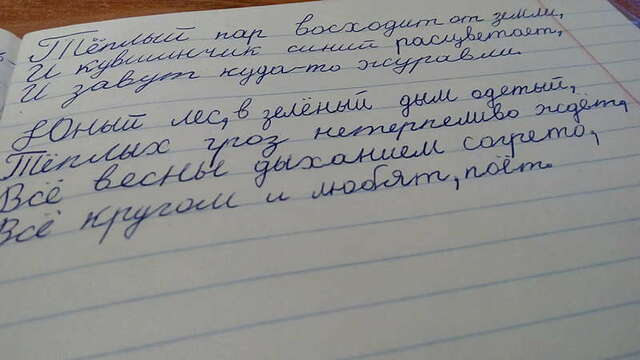 Тёплый пар восходит от земли,
И кувшинчик синий расцветает,
И зовут куда-то журавли.
Юный лес, в зелёный дым одетый,
Тёплых гроз нетерпеливо ждёт,
Всё весны дыханием согрето,
Всё кругом и любят, поёт.